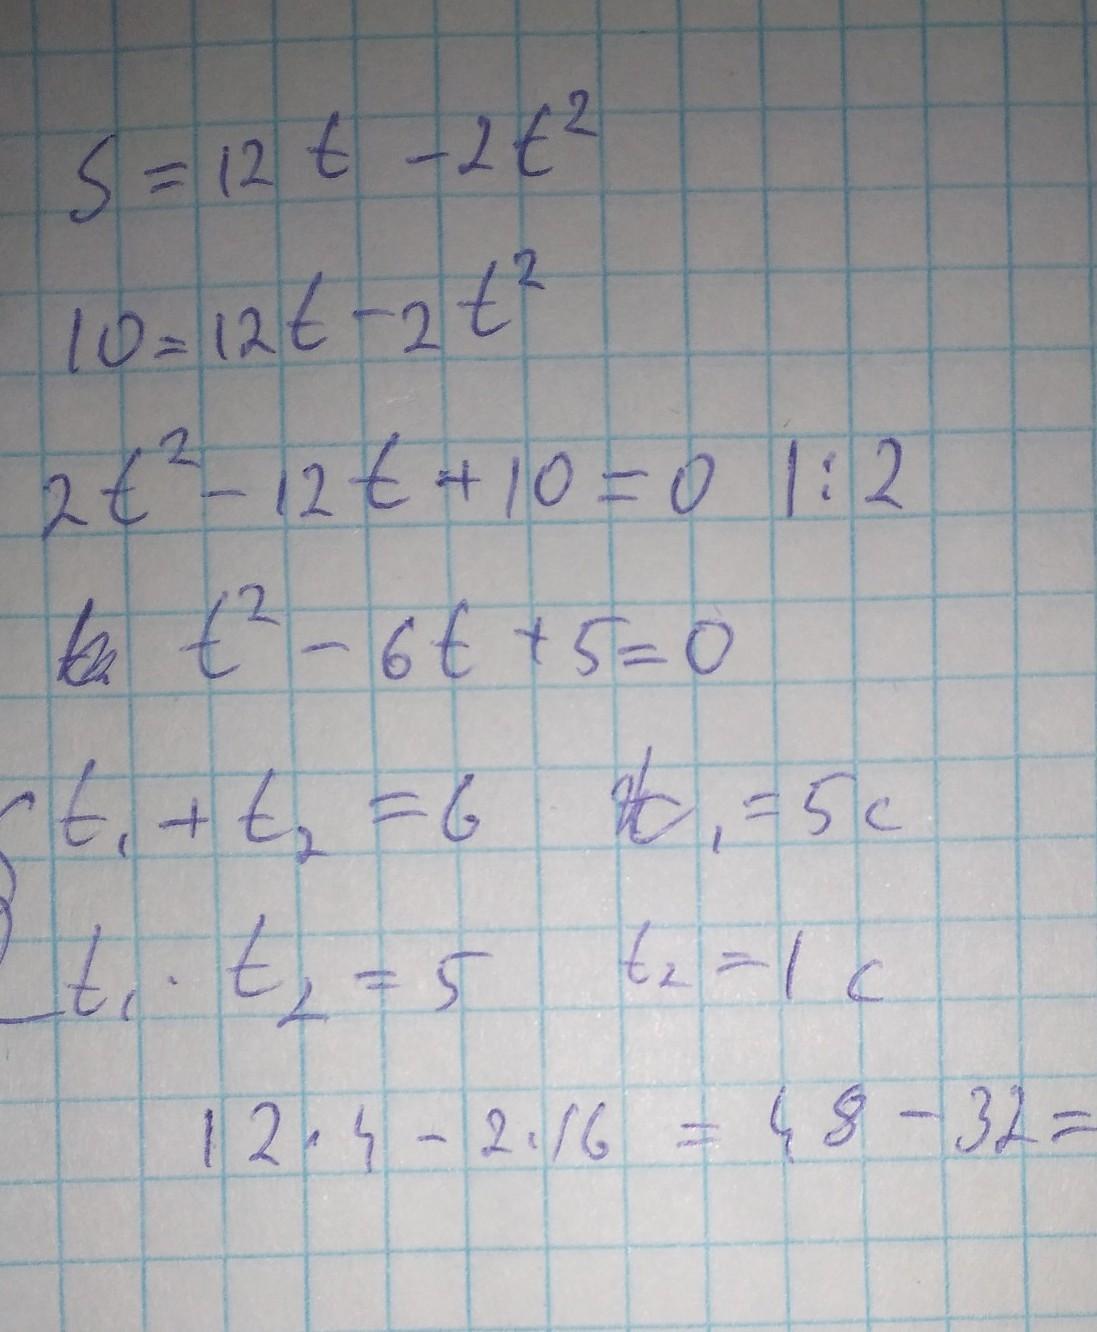 S = 12t - 2t²
10 = 12t - 2t²
2t² - 12t + 10 = 0 |:2
t² - 6t + 5 = 0
t₁ + t₂ = 6 t₁ = 5c
t₁ · t₂ = 5 t₂ = 1c
12·4 - 2·16 = 48 - 32 =